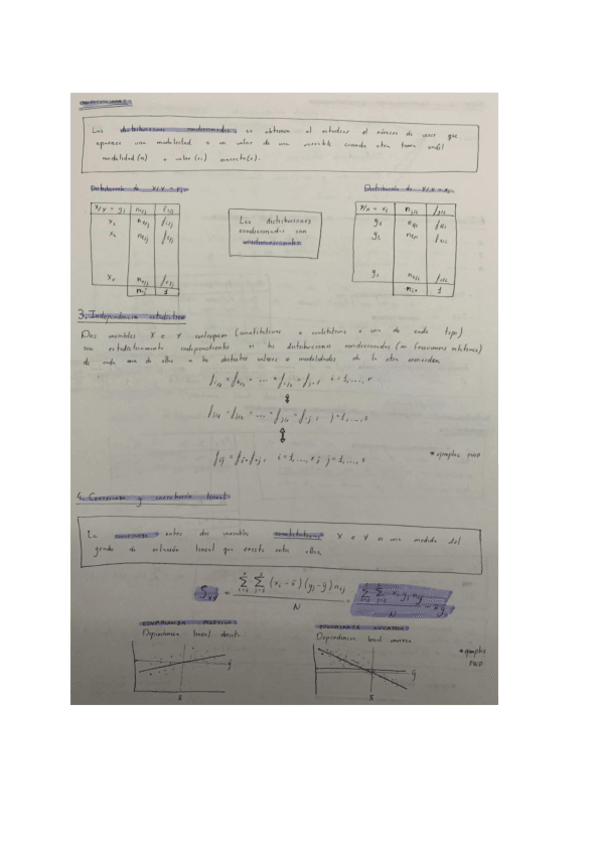 Las distribuciones condicionadas se obtienen al estudiar el número de veces que
aparece una modalidad o un valor de una variable cuando otra toma
modalidad(a) o valor(es) concreto(s).
Distribución de X/Y = yj
Distribución de Y/X = xi
X/Y = yj ni/j fi/j
x1 n1/j f1/j
x2 n2/j f2/j
xr nr/j fr/j
n.j 1
Las distribuciones
condicionadas son
unidimensionales
Y/X = xi nj/i fj/i
y1 n1/i f1/i
y2 n2/i f2/i
ys ns/i fs/i
ni. 1
3. Independencia estadística
Dos variables X e Y cualesquiera (cuantitativas o cualitativas o una de cada tipo)
son estadísticamente independientes si las distribuciones condicionadas (en frecuencias relativas)
de cada una de ellas a los distintos valores o modalidades de la otra coinciden.
fi/1 = fi/2 = ... = fi/s = fi. , i = 1, ..., r
⇕
fj/1 = fj/2 = ... = fj/r = f.j , j = 1, ..., s
⇕
fij = fi. f.j , i = 1, ..., r; j = 1, ..., s
* ejemplos PWP
4. Covarianza y correlación lineal
La covarianza entre dos variables cuantitativas X e Y es una medida del
grado de relación lineal que existe entre ellas.
Sxy = Σ Σ (xi - x̄)(yj - ȳ) nij / N = Σ Σ xi yj nij / N - x̄ ȳ
COVARIANZA POSITIVA
Dependencia lineal directa
COVARIANZA NEGATIVA
Dependencia lineal inversa
ȳ
x̄
ȳ
x̄
* ejemplos
PWP